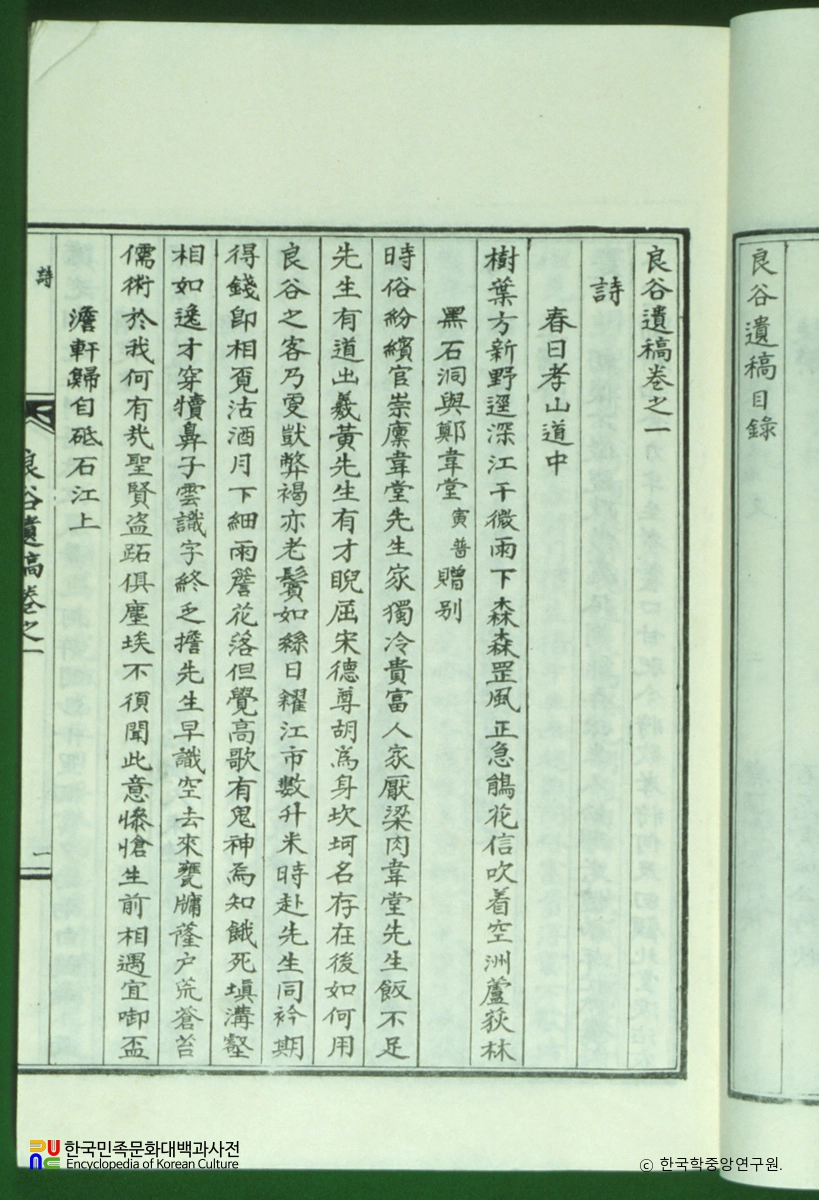 良谷遺稿目錄
良谷遺稿卷之一
詩
春日孝山道中
樹葉方新野逕深江干微雨下森森罡風正急鵃花信吹着空洲蘆荻林
黑石洞與鄭韋堂寅普贈別
時俗紛繽官崇廩韋堂先生家獨冷貴富人家厭梁肉韋堂先生飯不足
先生有道出羲黃先生有才睨屈宋德尊胡爲身坎坷名存在後如何用
良谷之客乃更獃弊褐亦老鬢如絲日糴江市數升米時赴先生同衿期
得錢卽相覔沽酒月下細雨簷花落但覺高歌有鬼神焉知餓死塡溝壑
相如逸才穿犢鼻子雲識字終乏擔先生早識空去來甕牖蓬户荒蒼苔
儒術於我何有㢤聖賢盜跖俱塵埃不須聞此意慘愴生前相遇宜啣盃
澹軒歸自砥石江上
詩
良谷遺稿卷之一
一
한국민족문화대백과사전
Encyclopedia of Korean Culture
© 한국학중앙연구원.